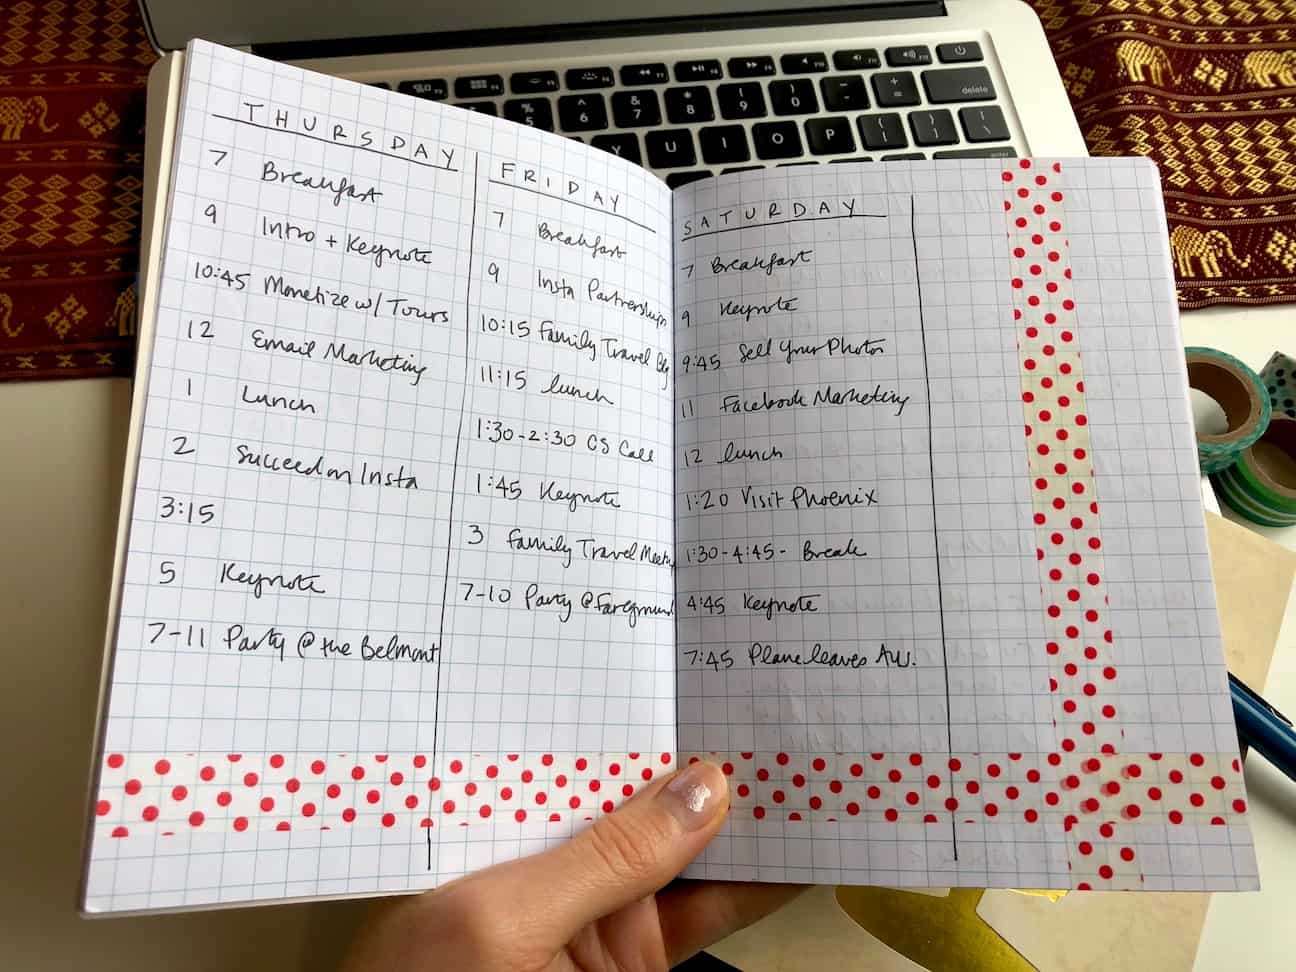 THURSDAY
7 Breakfast
9 Intro + Keynote
10:45 Monetize w/ Tours
12 Email Marketing
1 Lunch
2 Succeed on Insta
3:15
5 Keynote
7-11 Party @ the Belmont
FRIDAY
7 Breakfast
9 Insta Partnerships
10:15 Family Travel
11:15 lunch
1:30-2:30 CS Call
1:45 Keynote
3 Family Travel
7-10 Party @
SATURDAY
7 Breakfast
9 Keynote
9:45 Sell Your Photos
11 Facebook Marketing
12 lunch
1:20 Visit Phoenix
1:30-4:45- Break
4:45 Keynote
7:45 Plane leaves
% 5 ^ 6 & 7 * 8 ( 9 ) 0 - + = delete
Y U I O P { [ } ] | \